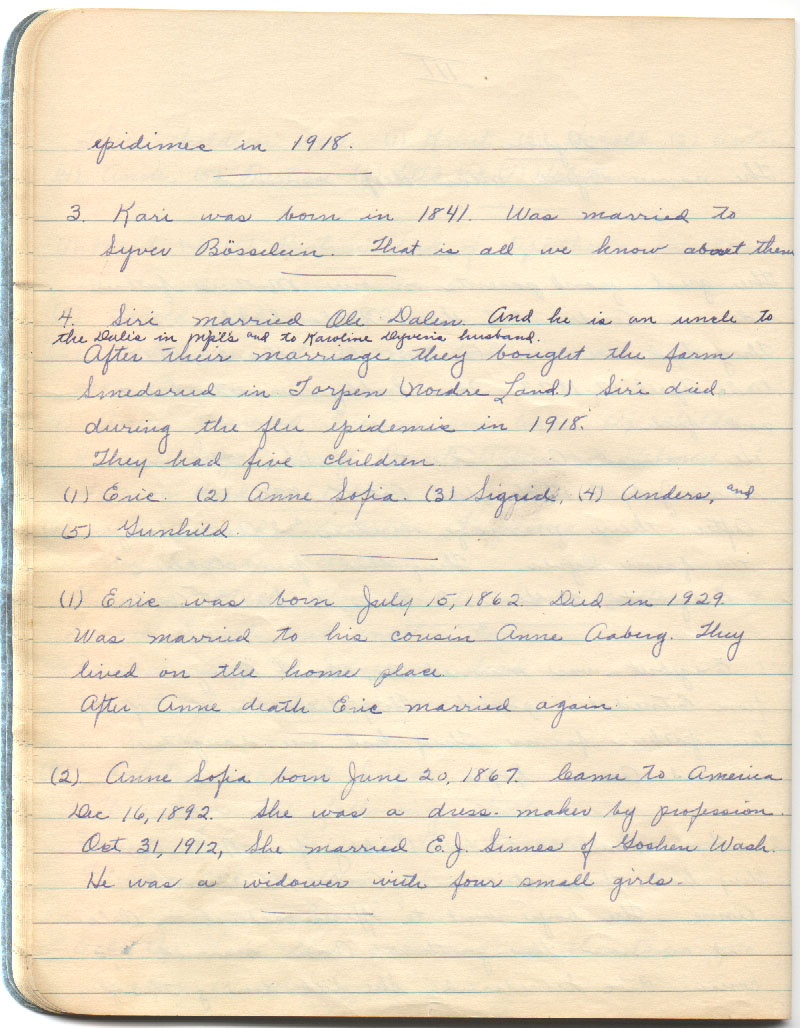 epidimec in 1918.
3. Kari was born in 1841. Was married to
Syver Bösselein. That is all we know about them
4. Siri married Ole Dalen. And he is an uncle to
the Dalis in Mpl's and to Karoline Dyvens husband.
After their marriage they bought the farm
Smedsrud in Torpen (Nordre Land.) Siri died
during the flu epidemic in 1918.
They had five children
(1) Eric. (2) Anne Sofia. (3) Sigrid, (4) Anders, and
(5) Gunhild.
(1) Eric was born July 15, 1862. Died in 1929.
Was married to his cousin Anne Aaberg. They
lived on the home place
After Anne death Eric married again.
(2) Anne Sofia born June 20, 1867. Came to America
Dec 16, 1892. She was a dress-maker by profession.
Oct 31, 1912, She married E.J. Sinnes of Goshen Wash.
He was a widower with four small girls.